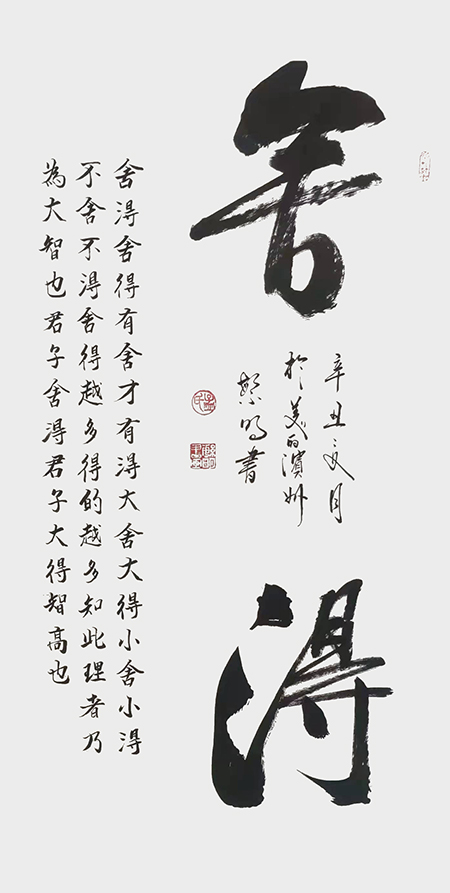 舍
淂
辛丑夏月
於美丽濱州
書
舍淂舍得有舍才有淂大舍大得小舍小淂
不舍不淂舍得越多得的越多知此理者乃
為大智也君子舍淂君子大得智高也